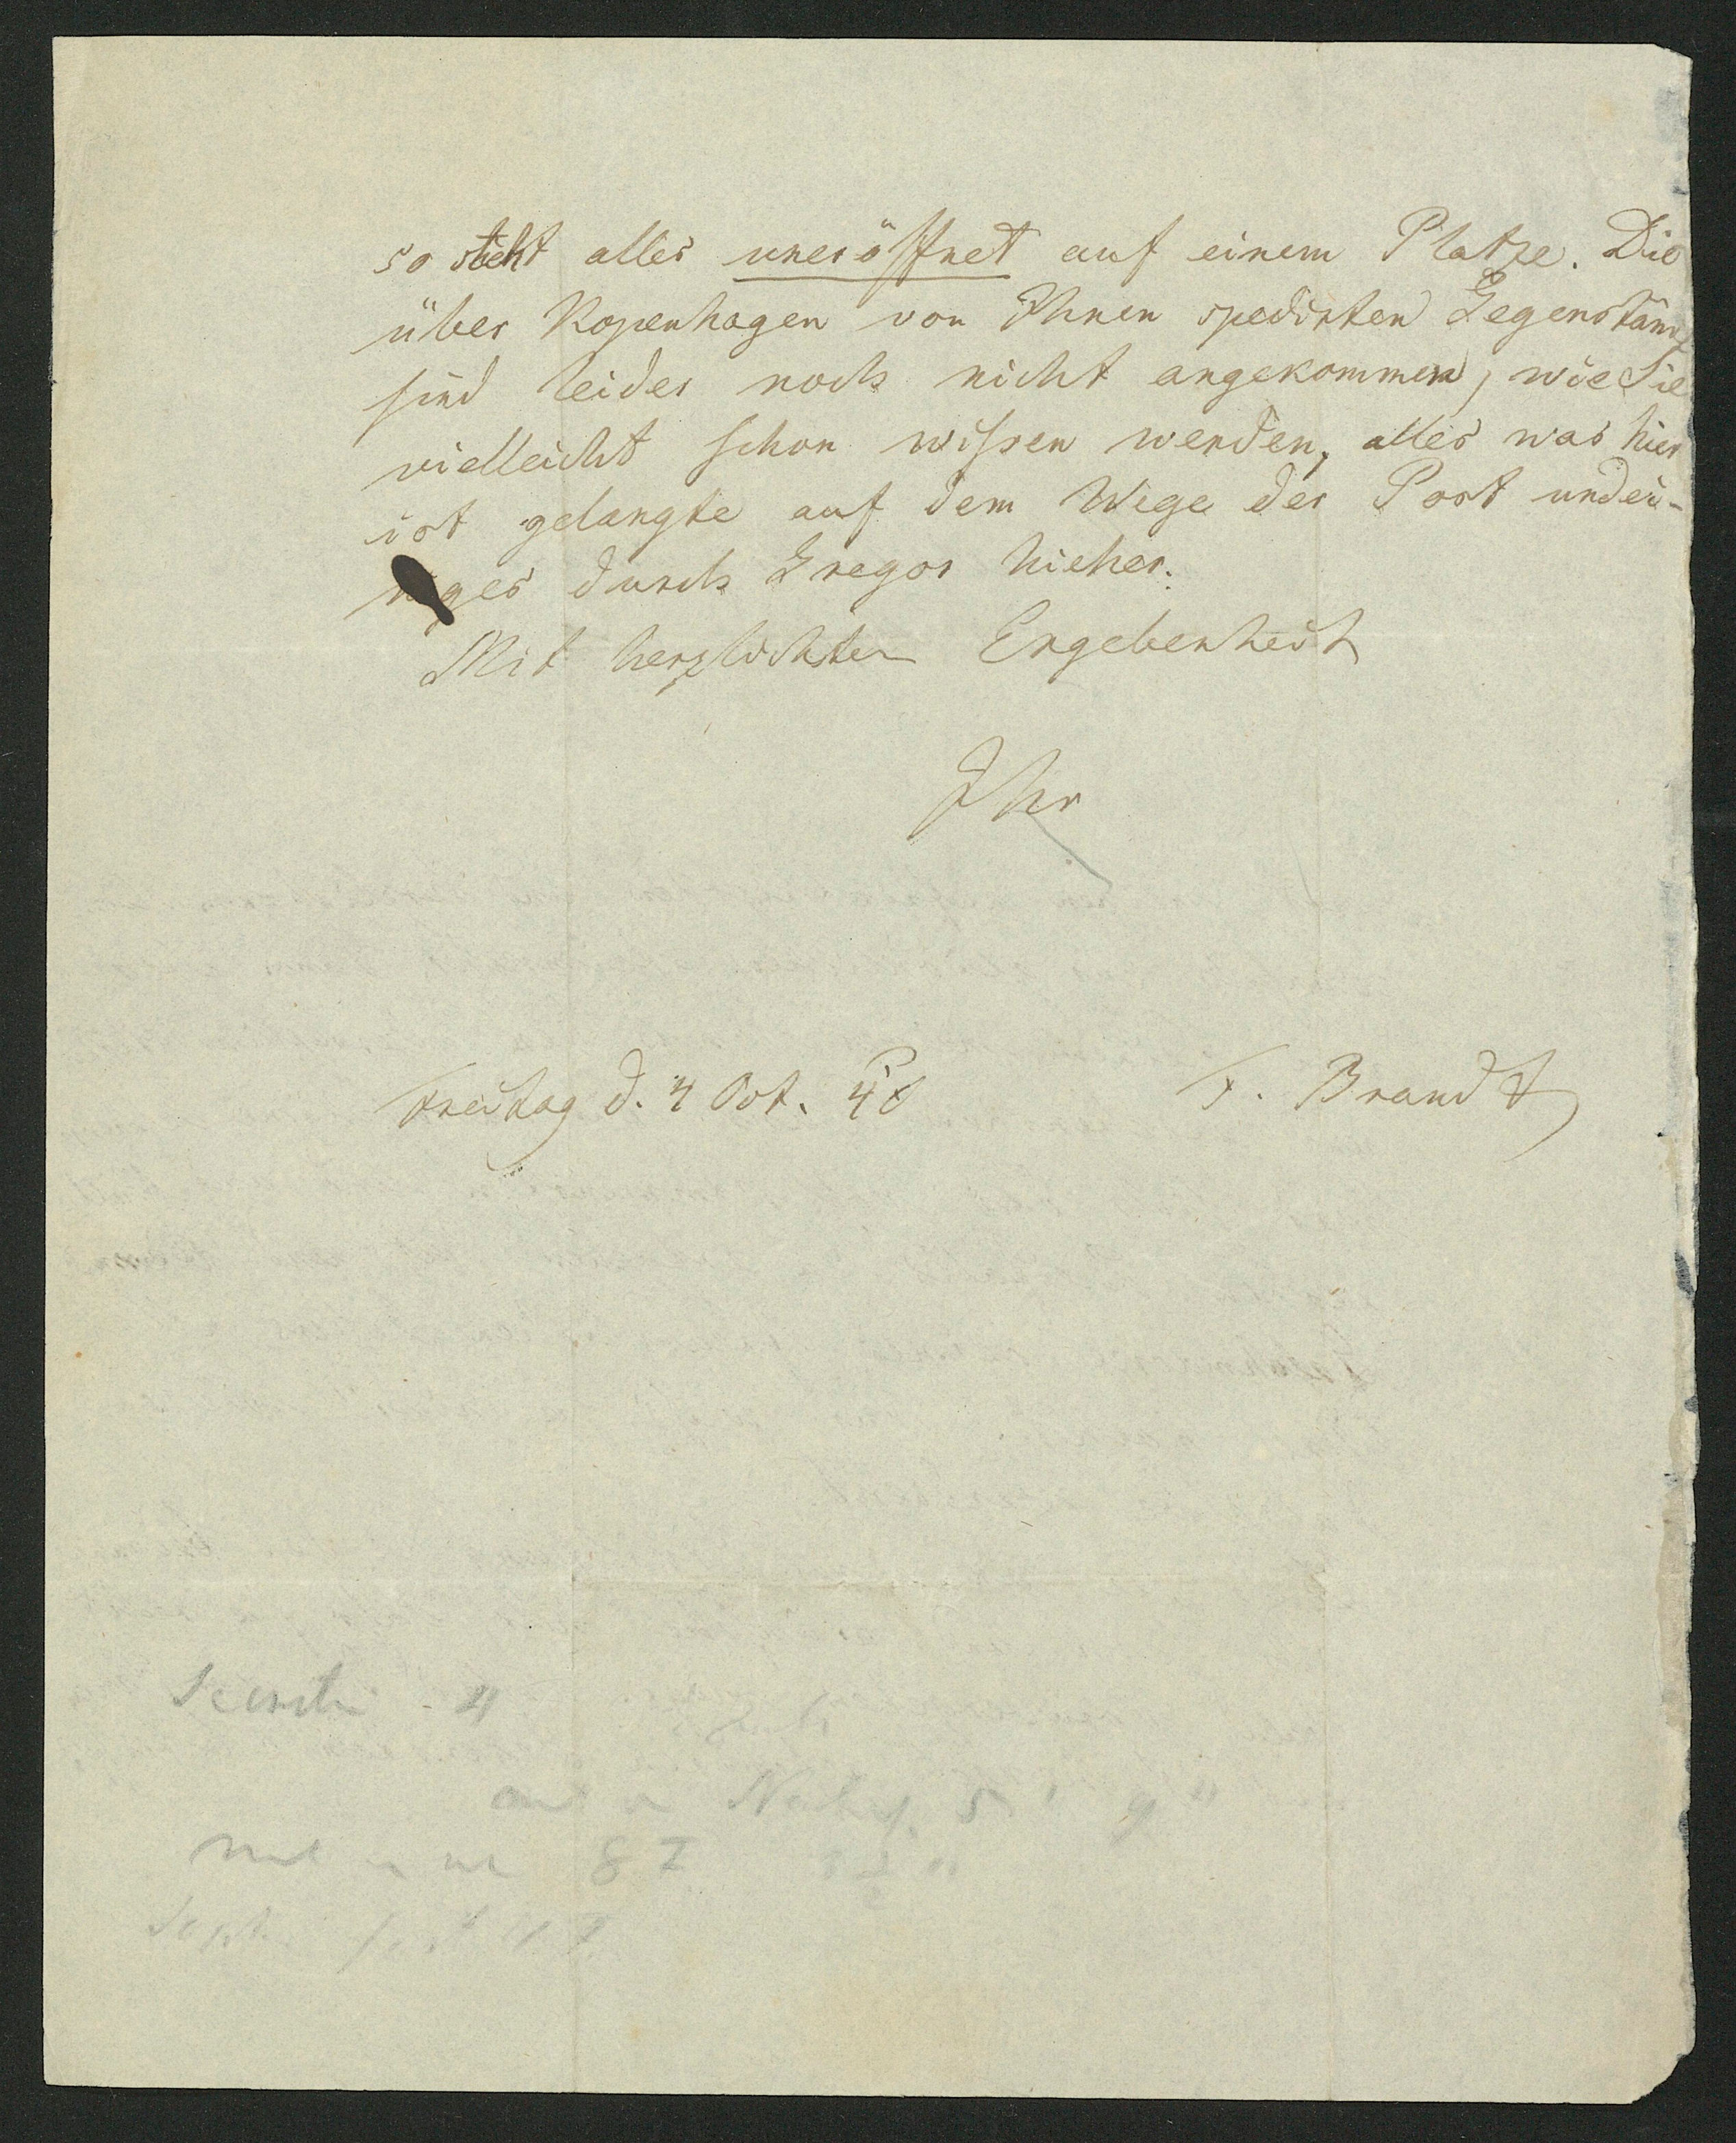 so steht alles uneröffnet auf einem Platze. Die
über Kopenhagen von Ihnen spedirten Gegenstän
sind leider noch nicht angekommen, wie Sie
vielleicht schon wissen werden, alles was hier
ist gelangte auf dem Wege der Post und ei-
niges durch Gregor hieher.
Mit herzlichster Ergebenheit
Ihr
Freitag d. 4 Oct.
F. Brandt